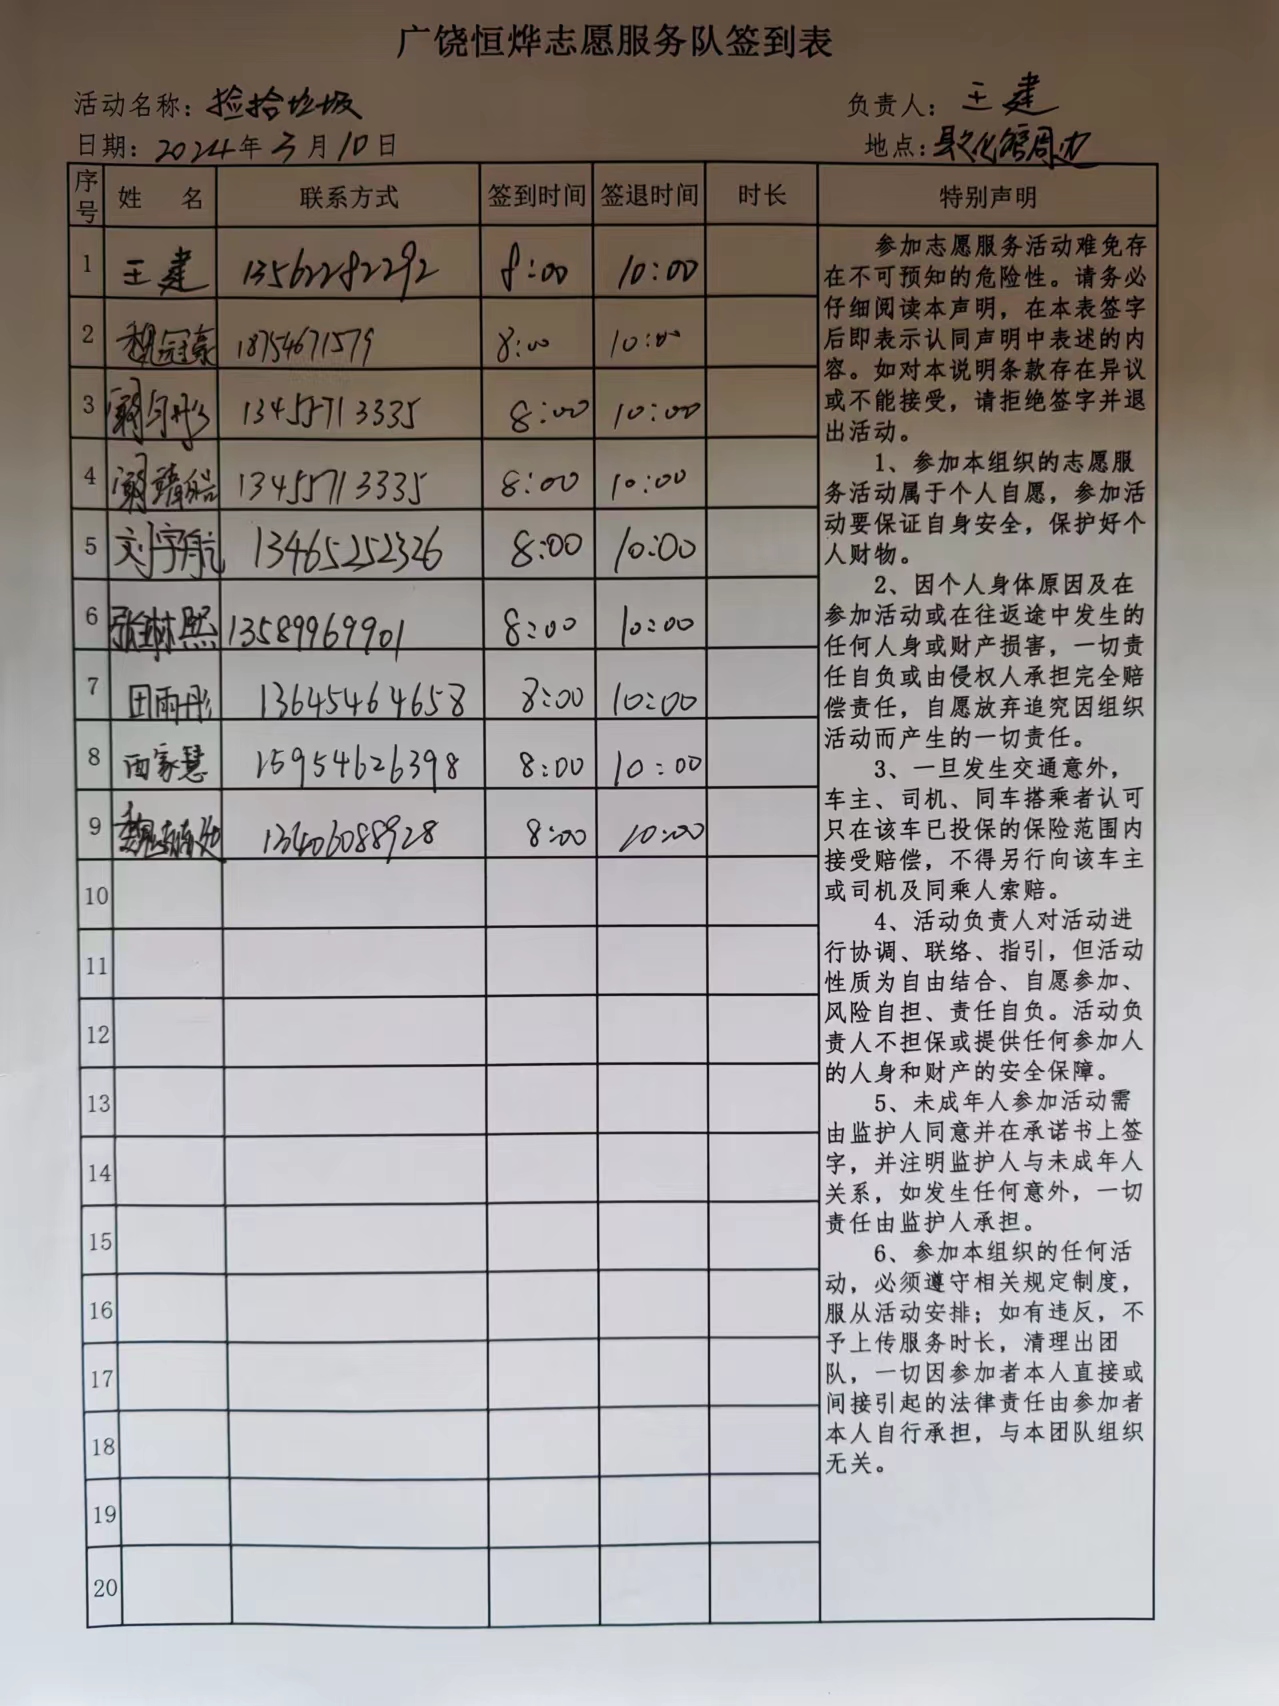 广饶恒烨志愿服务队签到表
活动名称：捡拾垃圾 负责人：王建
日期：2024年3月10日 地点：县文化馆周边
序号 姓名 联系方式 签到时间 签退时间 时长 特别声明
1 王建 13562282292 8:00 10:00
2 魏冠豪 18754671579 8:00 10:00
3 13455713335 8:00 10:00
4 13455713335 8:00 10:00
5 刘宇航 13465252326 8:00 10:00
6 13589969901 8:00 10:00
7 田雨彤 13645464658 8:00 10:00
8 西家慧 15954626398 8:00 10:00
9 魏 13406088928 8:00 10:00
10
11
12
13
14
15
16
17
18
19
20
参加志愿服务活动难免存
在不可预知的危险性。请务必
仔细阅读本声明，在本表签字
后即表示认同声明中表述的内
容。如对本说明条款存在异议
或不能接受，请拒绝签字并退
出活动。
1、参加本组织的志愿服
务活动属于个人自愿，参加活
动要保证自身安全，保护好个
人财物。
2、因个人身体原因及在
参加活动或在往返途中发生的
任何人身或财产损害，一切责
任自负或由侵权人承担完全赔
偿责任，自愿放弃追究因组织
活动而产生的一切责任。
3、一旦发生交通意外，
车主、司机、同车搭乘者认可
只在该车已投保的保险范围内
接受赔偿，不得另行向该车主
或司机及同乘人索赔。
4、活动负责人对活动进
行协调、联络、指引，但活动
性质为自由结合、自愿参加、
风险自担、责任自负。活动负
责人不担保或提供任何参加人
的人身和财产的安全保障。
5、未成年人参加活动需
由监护人同意并在承诺书上签
字，并注明监护人与未成年人
关系，如发生任何意外，一切
责任由监护人承担。
6、参加本组织的任何活
动，必须遵守相关规定制度，
服从活动安排；如有违反，不
予上传服务时长，清理出团
队，一切因参加者本人直接或
间接引起的法律责任由参加者
本人自行承担，与本团队组织
无关。